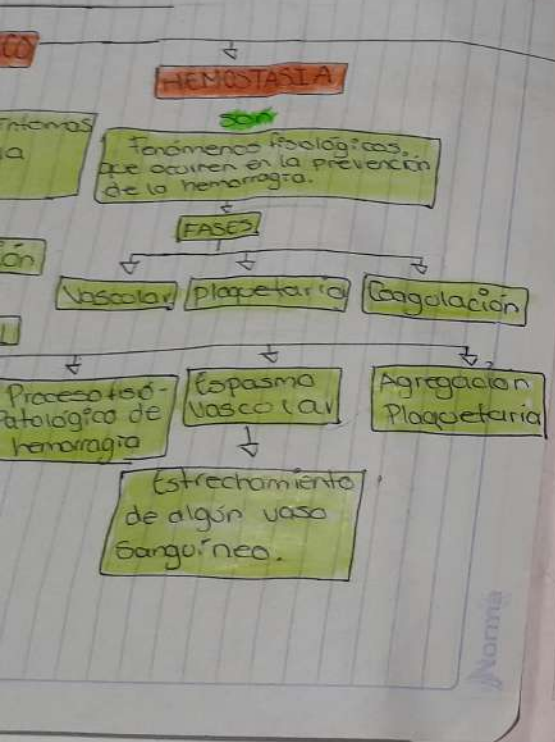 CO
HEMOSTASIA
son
intomas
ia
Fenómenos fisiológicos,
que ocurren en la prevención
de la hemorragia.
FASES
ón
Vascolar
Plaquetaria
Coagolación
Proceso fisio-
patológico de
hemorragia
Espasmo
vascolar
Agregación
Plaquetaria
Estrechamiento
de algún vaso
sanguíneo.
Norma